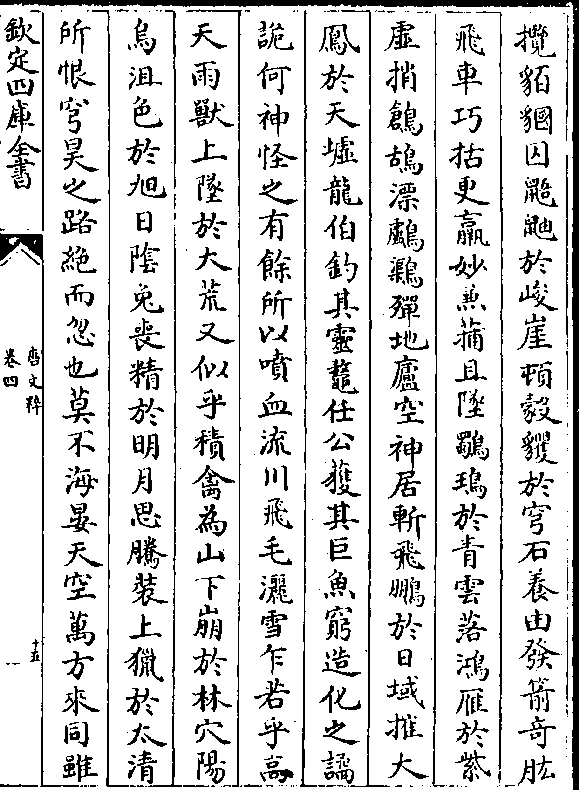 攬貊囚鼯鼬於峻崖頓縠貜於穹石養由發箭奇肱
飛車巧括更羸妙兼蒲且墜於青雲落鴻雁於紫
虛捎鶬鴣漂鸕殫地廬空神居斬飛鵬於日域摧大
鳳於天墟龍伯釣其靈鼇任公獲其巨魚窮造化之譎
詭何神怪之有餘所以噴血流川飛毛灑雪乍若乎高
天雨獸上墜於大荒又似乎積禽為山下崩於林穴陽
烏沮色於旭日陰兔喪精於明月思騰裝上獵於太清
所恨穹昊之路絶而忽也莫不海晏天空萬方來同雖
欽定四庫全書
唐文粹
卷四
十五